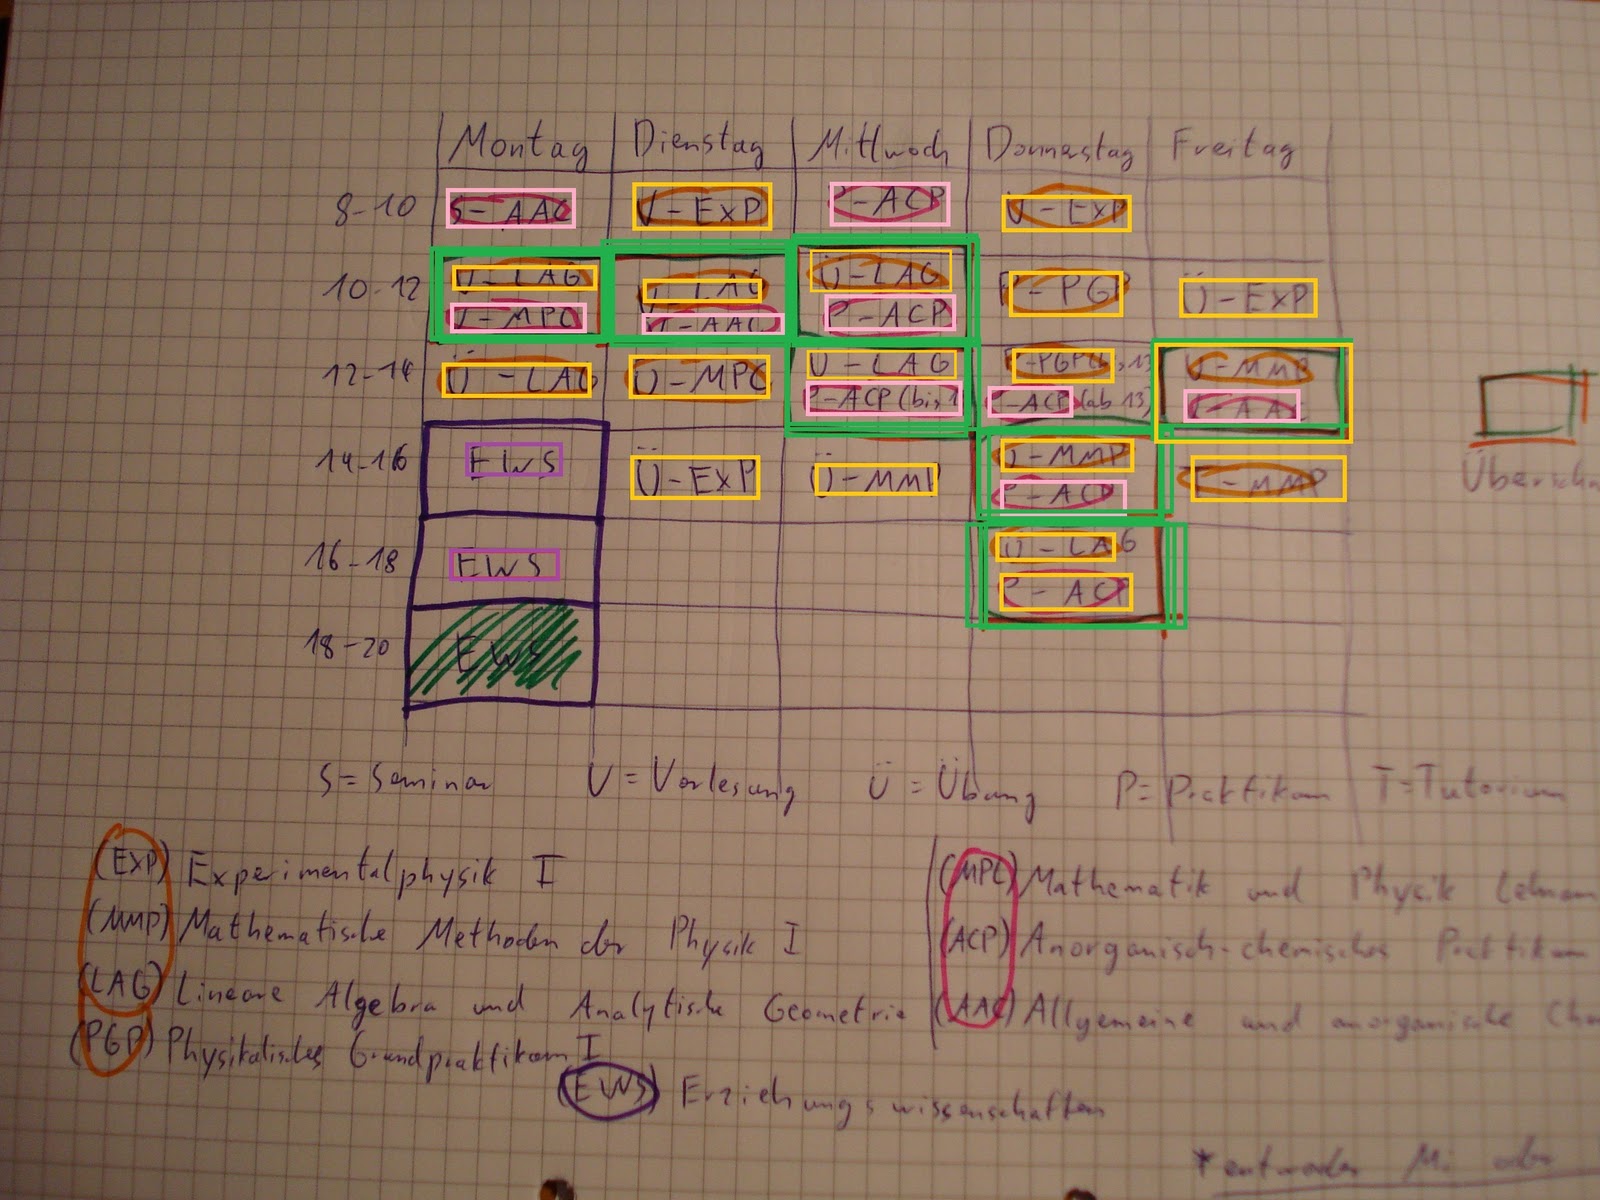 Montag Dienstag Mittwoch Donnerstag Freitag
8-10 S-AAC V-EXP P-ACP V-EXP
10-12 Ü-LAG V-LAG Ü-LAG P-PGP Ü-EXP
Ü-MPC V-AAC P-ACP
12-14 Ü-LAG Ü-MPC V-LAG V-MMP
P-ACP (bis P-ACP (ab 13) V-AAC
14-16 EWS Ü-EXP Ü-MMP Ü-MMP T-MMP
P-ACP
16-18 EWS Ü-LAG
P-ACP
18-20 EWS
S=Seminar V=Vorlesung Ü=Übung P=Praktikum T=Tutorium
(EXP) Experimentalphysik I
(MMP) Mathematische Methoden der Physik I
(LAG) Lineare Algebra und Analytische Geometrie
(PGP) Physikalisches Grundpraktikum I
(MPC) Mathematik und Physik
(ACP) Anorganisch-chemisches Praktikum
(AAC) Allgemeine und anorganische
(EWS) Erziehungswissenschaften
*entweder Mi oder